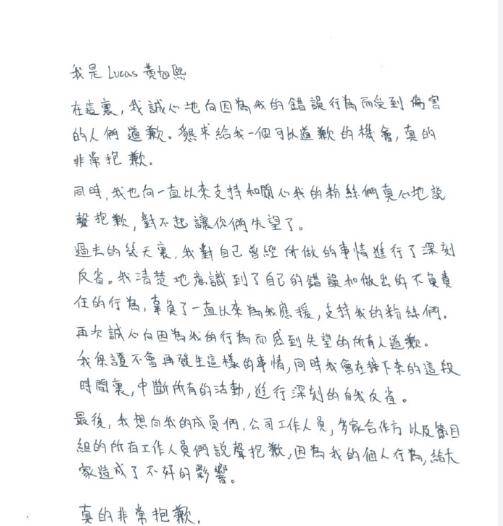 我是 Lucas 黃旭熙
在這裏，我誠心地向因為我的錯誤行為而受到傷害
的人們道歉。懇求給我一個可以道歉的機會，真的
非常抱歉。
同時，我也向一直以來支持和關心我的粉絲們真心地說
聲抱歉，對不起讓你們失望了。
過去的幾天裏，我對自己曾經所做的事情進行了深刻
反省。我清楚地意識到了自己的錯誤和做出的不負責
任的行為，辜負了一直以來為我應援，支持我的粉絲們。
再次誠心向因為我的行為而感到失望的所有人道歉。
我保證不會再發生這樣的事情，同時我會在接下來的這段
時間裏，中斷所有的活動，進行深刻的自我反省。
最後，我想向我的成員們，公司工作人員，多家合作方以及節目
組的所有工作人員們說聲抱歉，因為我的個人行為，給大
家造成了不好的影響。
真的非常抱歉。